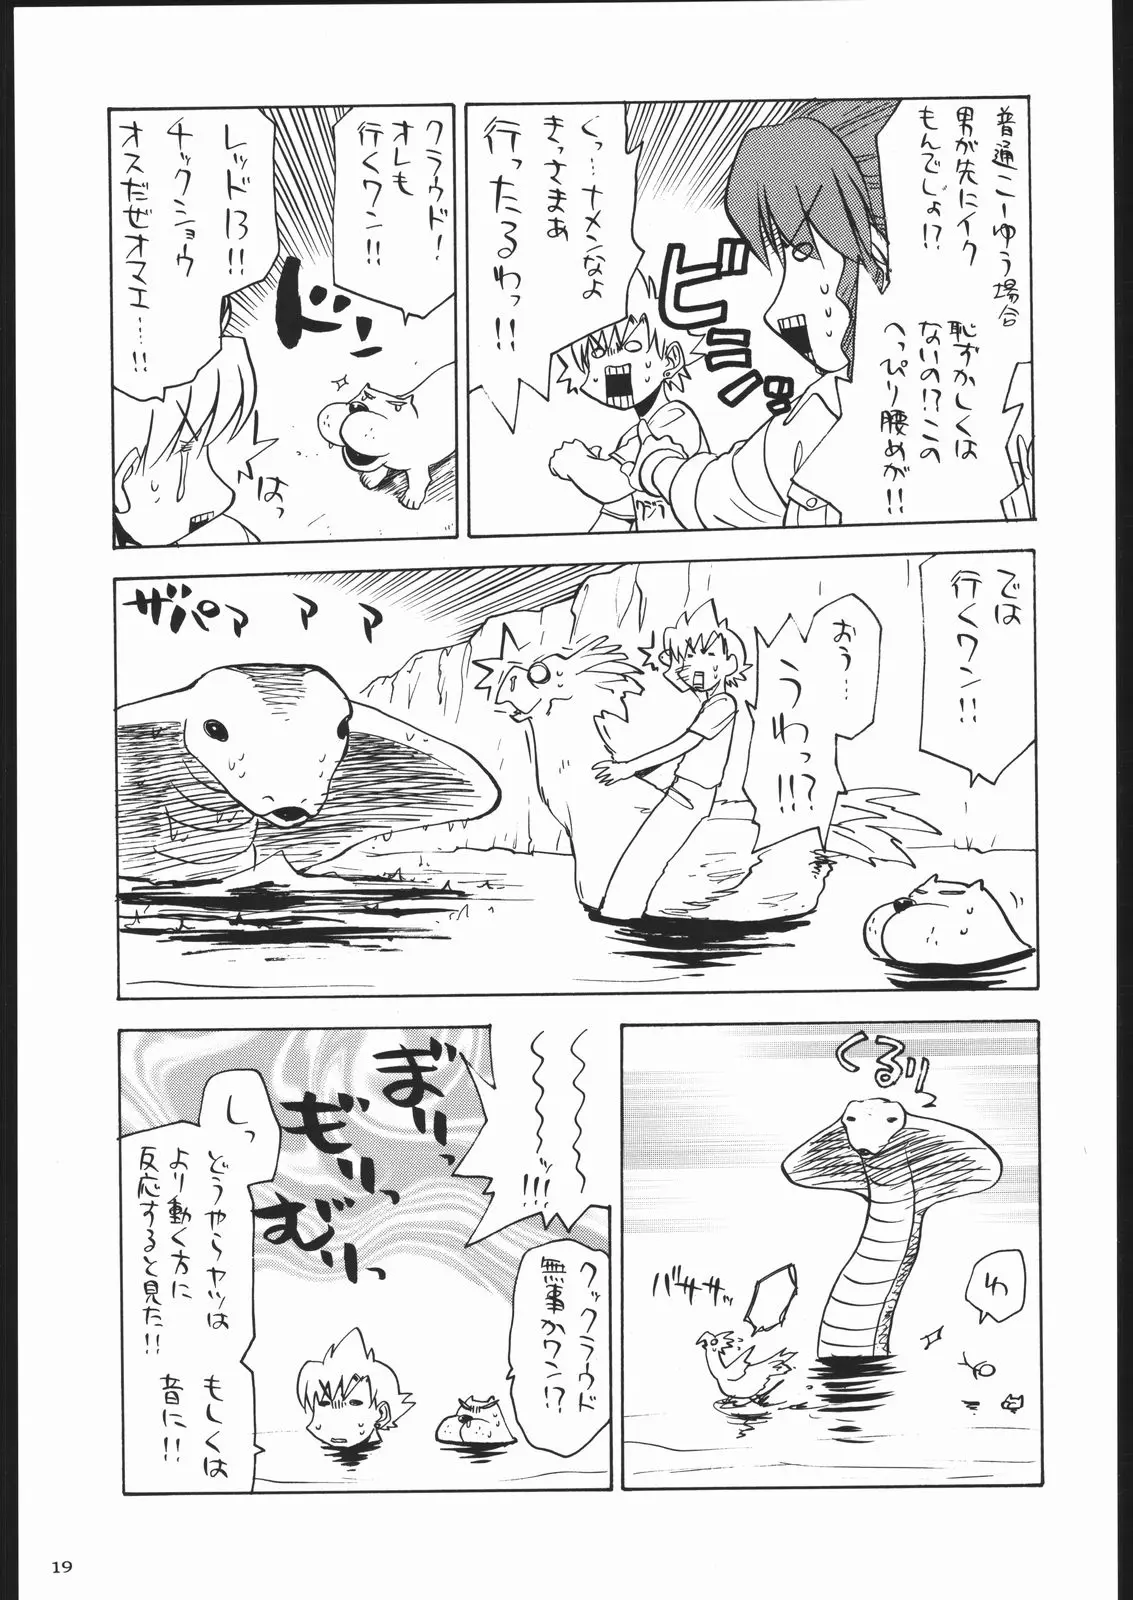 普通こーゆう場合
男が先にイク
もんでしょ!?
恥ずかしくは
ないの!?この
へっぴり腰めが!!
ビ
シッ
くっ…ナメンなよ
きっさまぁ
行ったるわっ!!
クジラ
クラウド!
オレも
行くワン!!
ドン
レッド13!!
チックショウ
オスだぜオマエ…!!
はっ
では
行くワン!!
おぅ…
うわっ!!!?
ザパァ
ァ
ァ
くるりっ
わ
バササッ
ッ!!!
クックラウド
無事かワン!?
ぎりっ
もりっ
むりっ
しっ
どうやらヤツは
より動く方に
反応すると見た!!
もしくは
音に!!
19